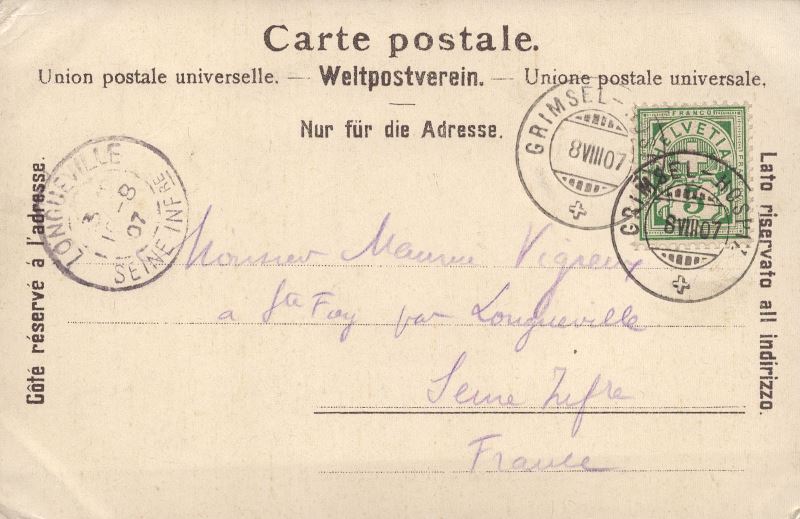 Carte postale.
Union postale universelle. — Weltpostverein. — Unione postale universale.
Nur für die Adresse.
Côté réservé á l'adresse.
Lato riservato all indirizzo.
LONGUEVILLE
8
07
SEINE INFRE
GRIMSEL-
8VIII07
FRANCO
HELVETIA
5
GRIMSEL-HOSPIZ
8VIII07
Monsieur Maurice Vigreux
a Ste Foy par Longueville
Seine Infre
France